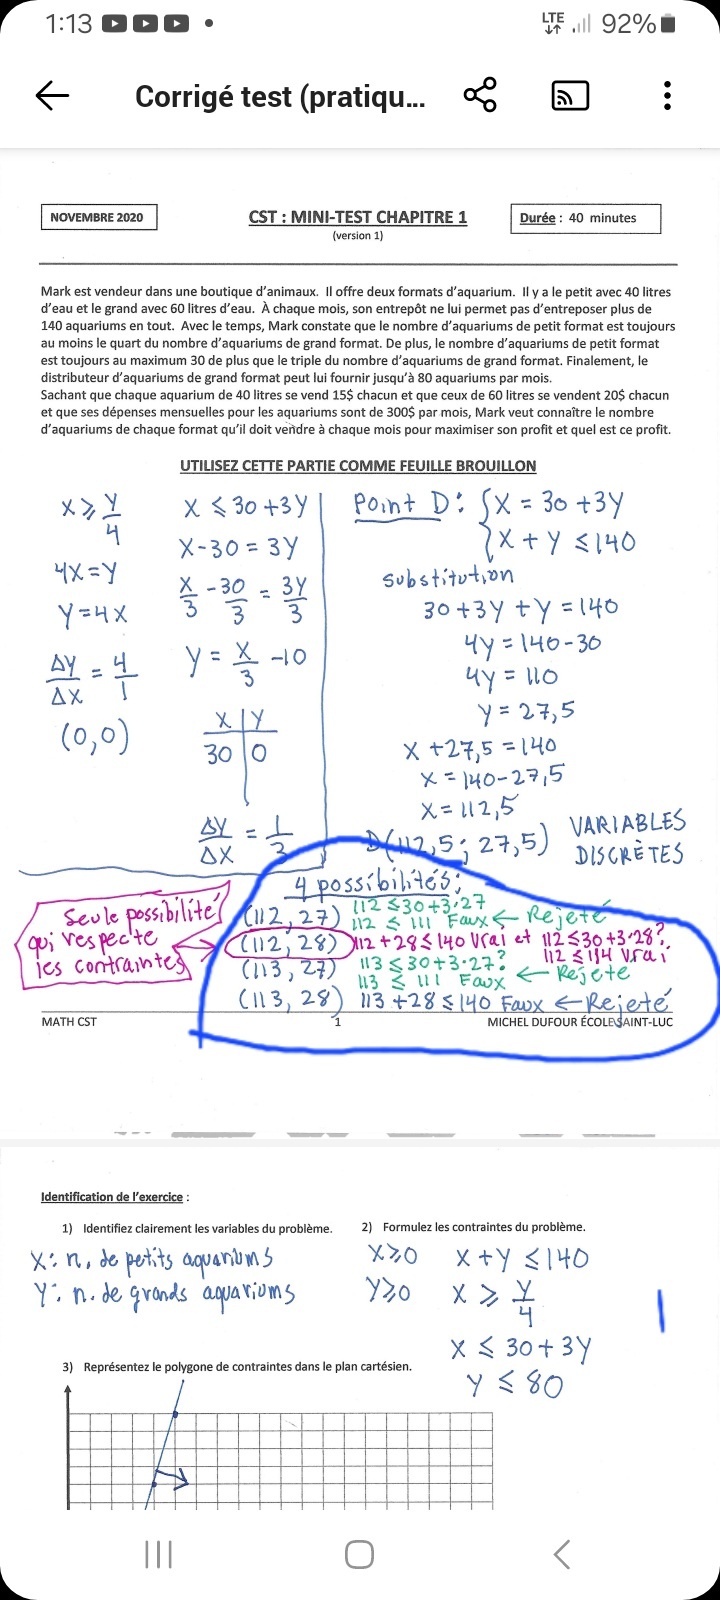 1:13
LTE
92%
Corrigé test (pratiqu...
NOVEMBRE 2020
CST : MINI-TEST CHAPITRE 1
(version 1)
Durée : 40 minutes
Mark est vendeur dans une boutique d'animaux. Il offre deux formats d'aquarium. Il y a le petit avec 40 litres
d'eau et le grand avec 60 litres d'eau. À chaque mois, son entrepôt ne lui permet pas d'entreposer plus de
140 aquariums en tout. Avec le temps, Mark constate que le nombre d'aquariums de petit format est toujours
au moins le quart du nombre d'aquariums de grand format. De plus, le nombre d'aquariums de petit format
est toujours au maximum 30 de plus que le triple du nombre d'aquariums de grand format. Finalement, le
distributeur d'aquariums de grand format peut lui fournir jusqu'à 80 aquariums par mois.
Sachant que chaque aquarium de 40 litres se vend 15$ chacun et que ceux de 60 litres se vendent 20$ chacun
et que ses dépenses mensuelles pour les aquariums sont de 300$ par mois, Mark veut connaître le nombre
d'aquariums de chaque format qu'il doit vendre à chaque mois pour maximiser son profit et quel est ce profit.
UTILISEZ CETTE PARTIE COMME FEUILLE BROUILLON
X ≥ Y/4
4X=Y
Y=4X
ΔY/ΔX = 4/1
(0,0)
X ≤ 30+3Y
X-30 = 3Y
X/3 - 30/3 = 3Y/3
Y = X/3 -10
X | Y
30 | 0
ΔY/ΔX = 1/3
Point D: { X = 30+3Y
X+Y ≤140
substitution
30+3Y+Y=140
4Y=140-30
4Y=110
Y=27,5
X+27,5=140
X=140-27,5
X=112,5
D(112,5; 27,5)
VARIABLES
DISCRÈTES
4 possibilités:
(112, 27) 112 ≤30+3·27
112 ≤ 111 Faux ← Rejeté
(112, 28) 112+28≤140 Vrai et 112≤30+3·28?
112 ≤114 Vrai
(113, 27) 113 ≤30+3·27?
113 ≤ 111 Faux ← Rejeté
(113, 28) 113+28≤140 Faux ← Rejeté
Seule possibilité
qui respecte
les contraintes
MATH CST
1
MICHEL DUFOUR ÉCOLE SAINT-LUC
Identification de l'exercice :
1) Identifiez clairement les variables du problème.
X: n. de petits aquariums
Y: n. de grands aquariums
2) Formulez les contraintes du problème.
X≥0 X+Y ≤140
Y≥0 X ≥ Y/4
X ≤ 30+3Y
Y ≤ 80
3) Représentez le polygone de contraintes dans le plan cartésien.